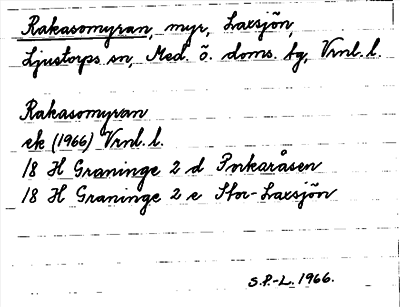 Rakasomyran, myr, Laxsjön,
Ljustorps sn, Med. ö. doms. sg, Vrnl. l.
Rakasomyran
ek (1966) Vrnl. l.
18 H Graninge 2 d Porkaråsen
18 H Graninge 2 e Stor-Laxsjön
S.P.-L. 1966.